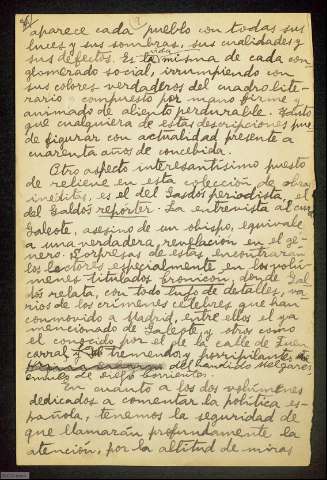 aparece cada pueblo con todas sus
luces y sus sombras, sus cualidades y
sus defectos. Es la vida misma de cada con-
glomerado social, irrumpiendo con
sus colores verdaderos del cuadro lite-
rario compuesto por mano firme y
animado de aliento perdurable. Tanto
que cualquiera de estas descripciones pue-
de figurar con actualidad presente a
cuarenta años de concebida.
Otro aspecto interesantísimo puesto
de relieve en esta colección de obras
inéditas, es el del Galdós periodista, el
del Galdós repórter. La entrevista al cura
Galeote, asesino de un obispo, equivale
a una verdadera revelación en el gé-
nero. Sorpresas de estas encontrarán
los lectores especialmente en los volú-
menes titulados Cronicón, donde Gal-
dós relata, con todo lujo de detalles, va-
rios de los crímenes célebres que han
conmovido a Madrid, entre ellos el ya
mencionado de Galeote, y otros como
el conocido por el de la calle de Fuen-
carral, y el tremendo y horripilante
del bandido Melgares
En cuanto a los dos volúmenes
dedicados a comentar la política es-
pañola, tenemos la seguridad de
que llamarán profundamente la
atención, por la altitud de miras